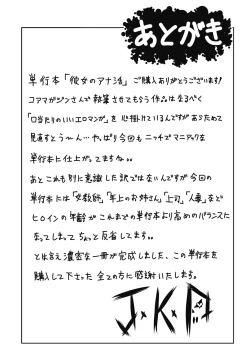 あとがき
単行本「彼女のアナ活」ご購入ありがとうございます!
コアマガジンさんで執筆させてもらう作品はなるべく
「口当たりのいいエロマンガ」を心掛けているんですがあらためて
見直すとう〜ん…やっぱり今回もニッチでマニアックな
単行本に仕上がってますね。。
あとこれも別に意識した訳ではないんですが今回の
単行本には「女教師」「年上のお姉さん」「上司」「人妻」など
ヒロインの年齢がこれまでの単行本より高めのバランスに
なってしまってちょっと反省してます。。
とは言え濃密な一冊が完成しました、この単行本を
購入して下さった全ての方に感謝いたします。
J・K・A